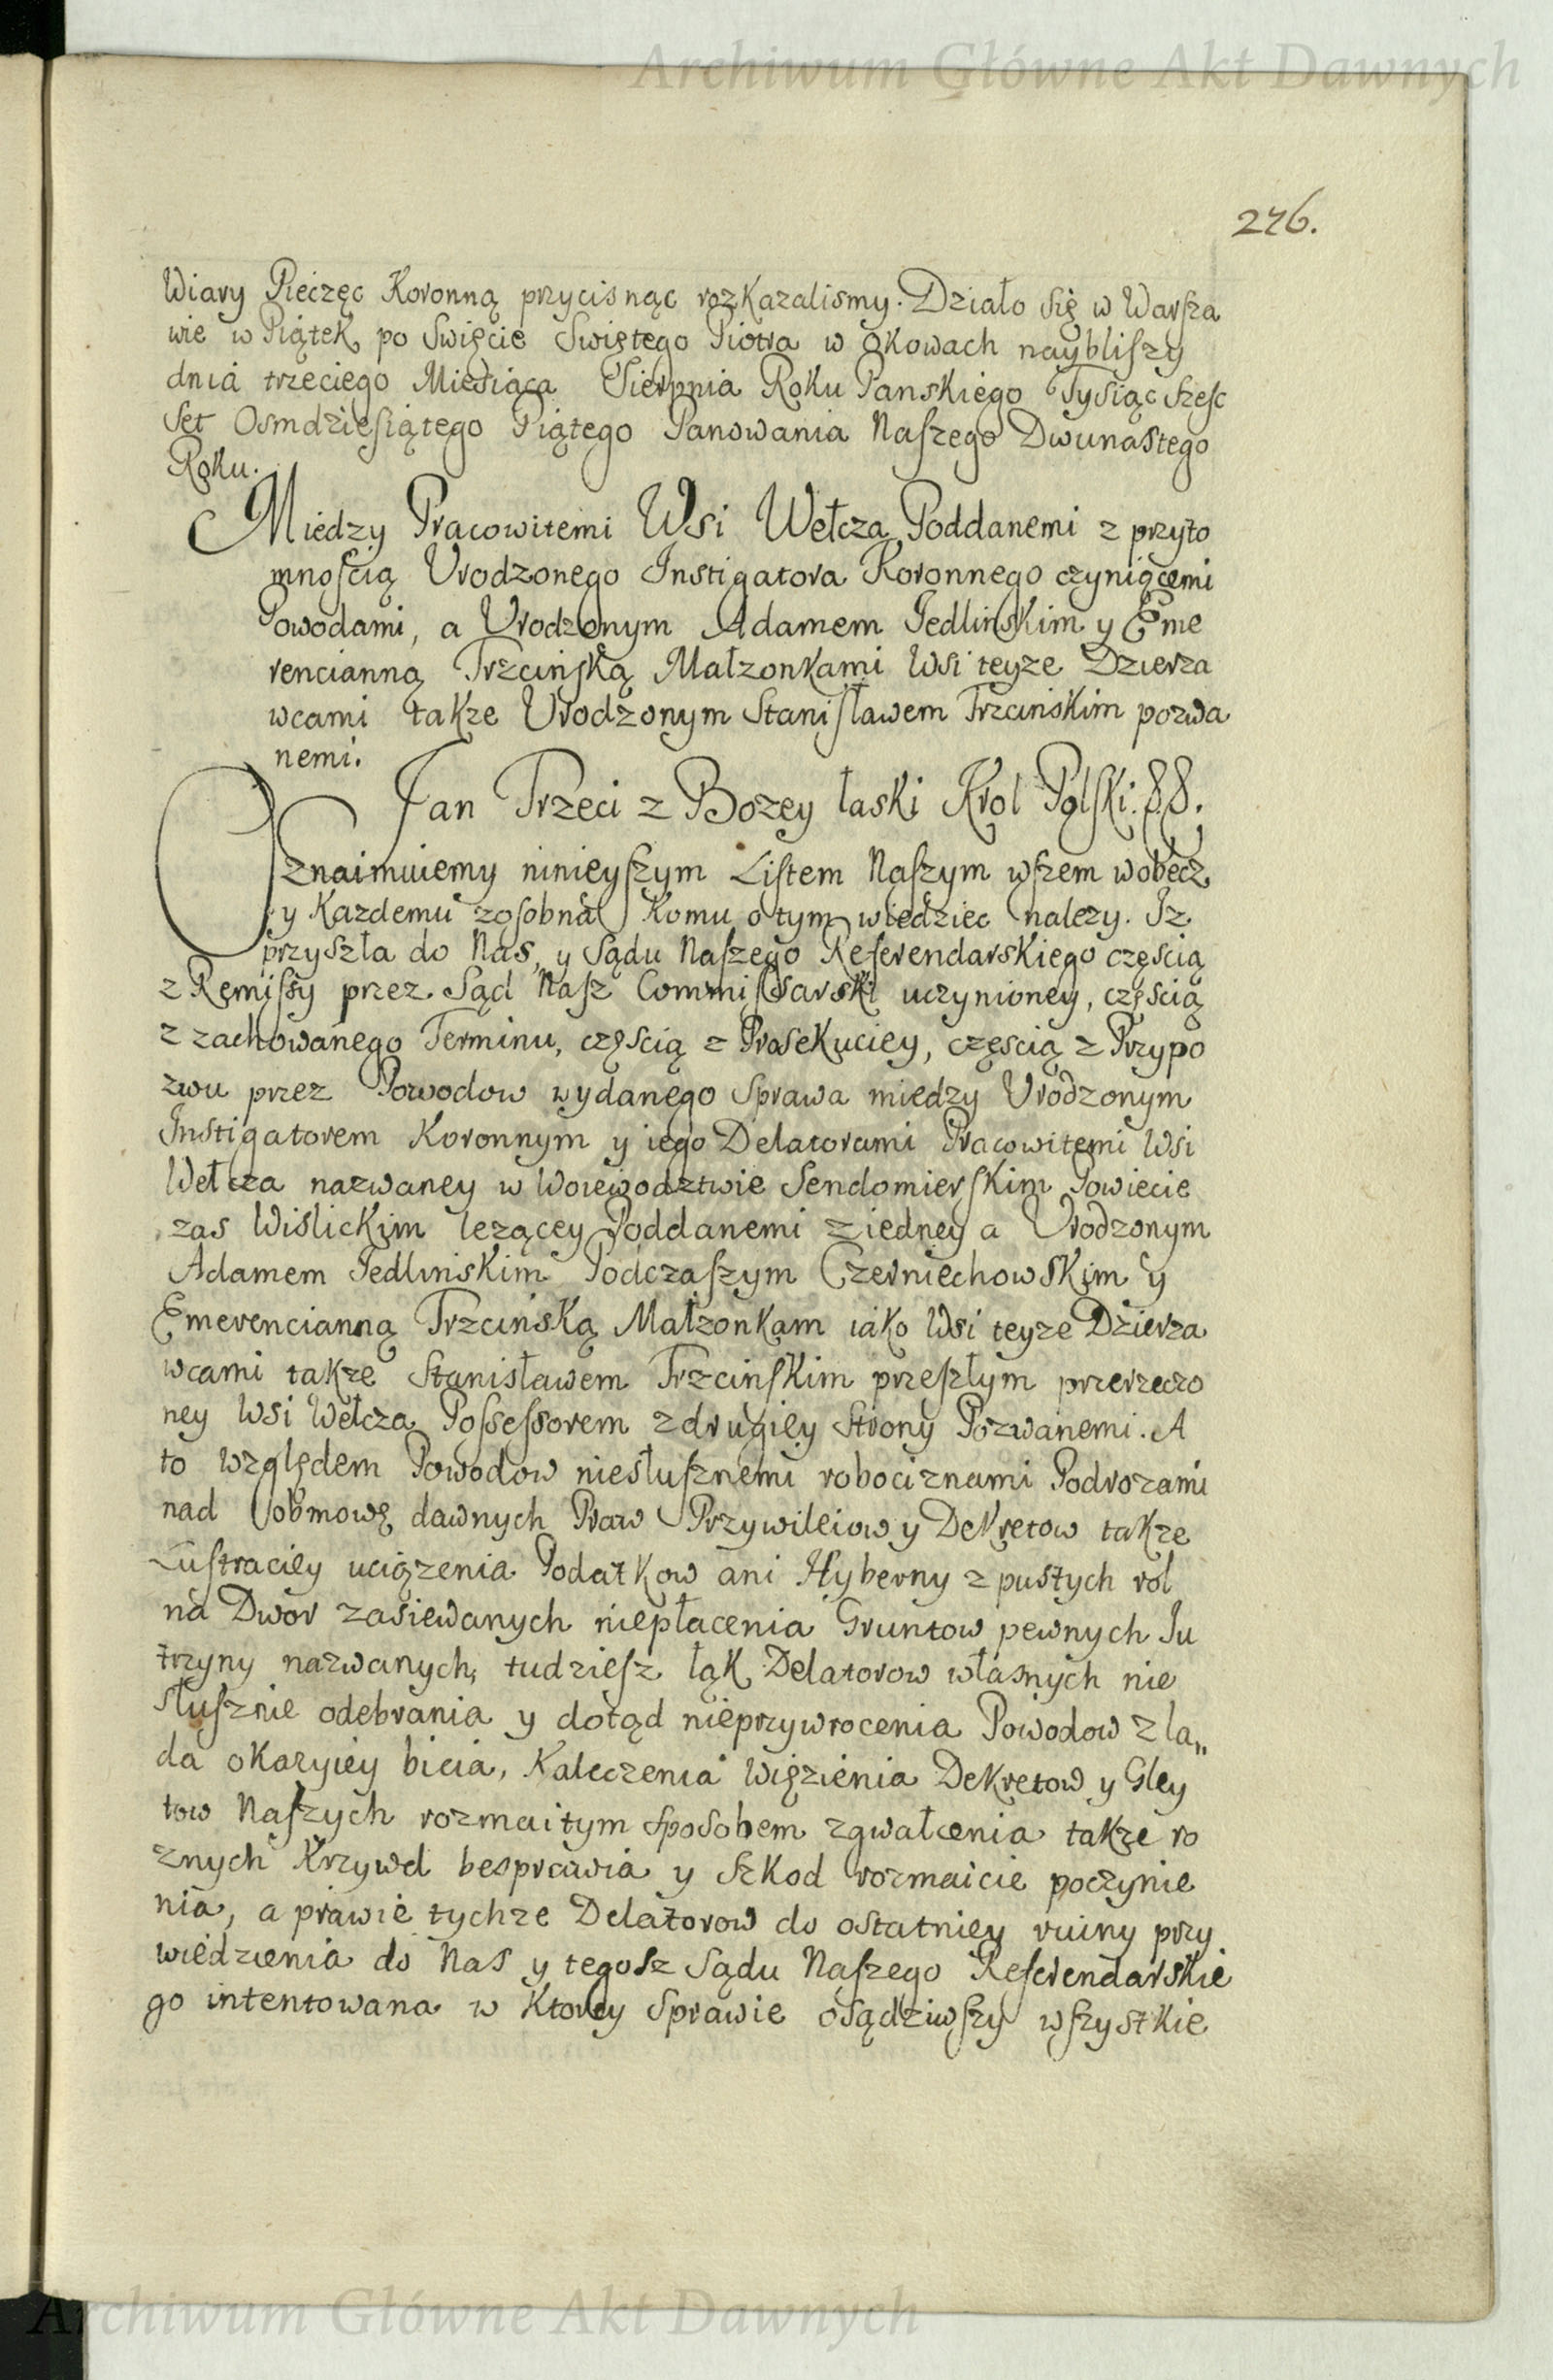 Archiwum Główne Akt Dawnych
276.
Wiary Pieczęc Koronną przycisnąc rozkazalismy. Działo się w Warsza
wie w Piątek po Swięcie Swiętego Piotra w okowach naybliszy
dnia trzeciego Miesiąca Sierpnia Roku Panskiego Tysiąc szesc
set Osmdziesiątego Piątego Panowania Naszego Dwunastego
Roku.
Miedzy Pracowitemi Wsi Wełcza Poddanemi z przyto
mnoscią Urodzonego Instigatora Koronnego czyniącemi
Powodami, a Urodzonym Adamem Jedlinskim y Eme
rencianną Trzcinską Małzonkami Wsi teyze Dzierza
wcami takze Urodzonym Stanisławem Trzcinskim pozwa
nemi.
Jan Trzeci z Bozey łaski Krol Polski. &. &.
Oznaimuiemy ninieyszym Listem Naszym wszem wobecz
y Kazdemu zosobna Komu o tym wiedziec nalezy. Iz
przyszła do Nas, y Sądu Naszego Referendarskiego częscią
z Remissy przez Sąd Nasz Commissarski uczynioney, częscią
z zachowanego Terminu, częscią z Prosekuciey, częscią z Przypo
zwu przez Powodow wydanego Sprawa miedzy Urodzonym
Instigatorem Koronnym y iego Delatorami Pracowitemi Wsi
Wełcza nazwaney w Woiewodztwie Sendomierskim Powiecie
zas Wislickim lezącey Poddanemi z iedney a Urodzonym
Adamem Jedlinskim Podczaszym Czerniechowskim y
Emerencianną Trzcinską Małzonkam iako Wsi teyze Dzierza
wcami takze Stanisławem Trzcinskim przeszłym przerzeczo
ney Wsi Wełcza Possessorem z drugiey Strony Pozwanemi. A
to względem Powodow niesłusznemi robociznami Podrozami
nad obmowę dawnych Praw Przywileiow y Dekretow takze
Lustraciey uciązenia Podatkow ani Hyberny z pustych rol
na Dwor zasiewanych niepłacenia Gruntow pewnych Ju
trzyny nazwanych, tudziesz łąk Delatorow własnych nie
słusznie odebrania y dotąd nieprzywrocenia Powodow z la„
da okazyiey bicia, Kaleczenia Więzienia Dekretow y Gley
tow Naszych rozmaitym sposobem zgwałcenia takze ro
znych Krzywd besprawia y szkod rozmaicie poczynie
nia, a prawie tychze Delatorow do ostatniey ruiny przy
wiedzienia do Nas y tegosz Sądu Naszego Referendarskie
go intentowana w Ktorey Sprawie osądziwszy wszystkie
Archiwum Główne Akt Dawnych